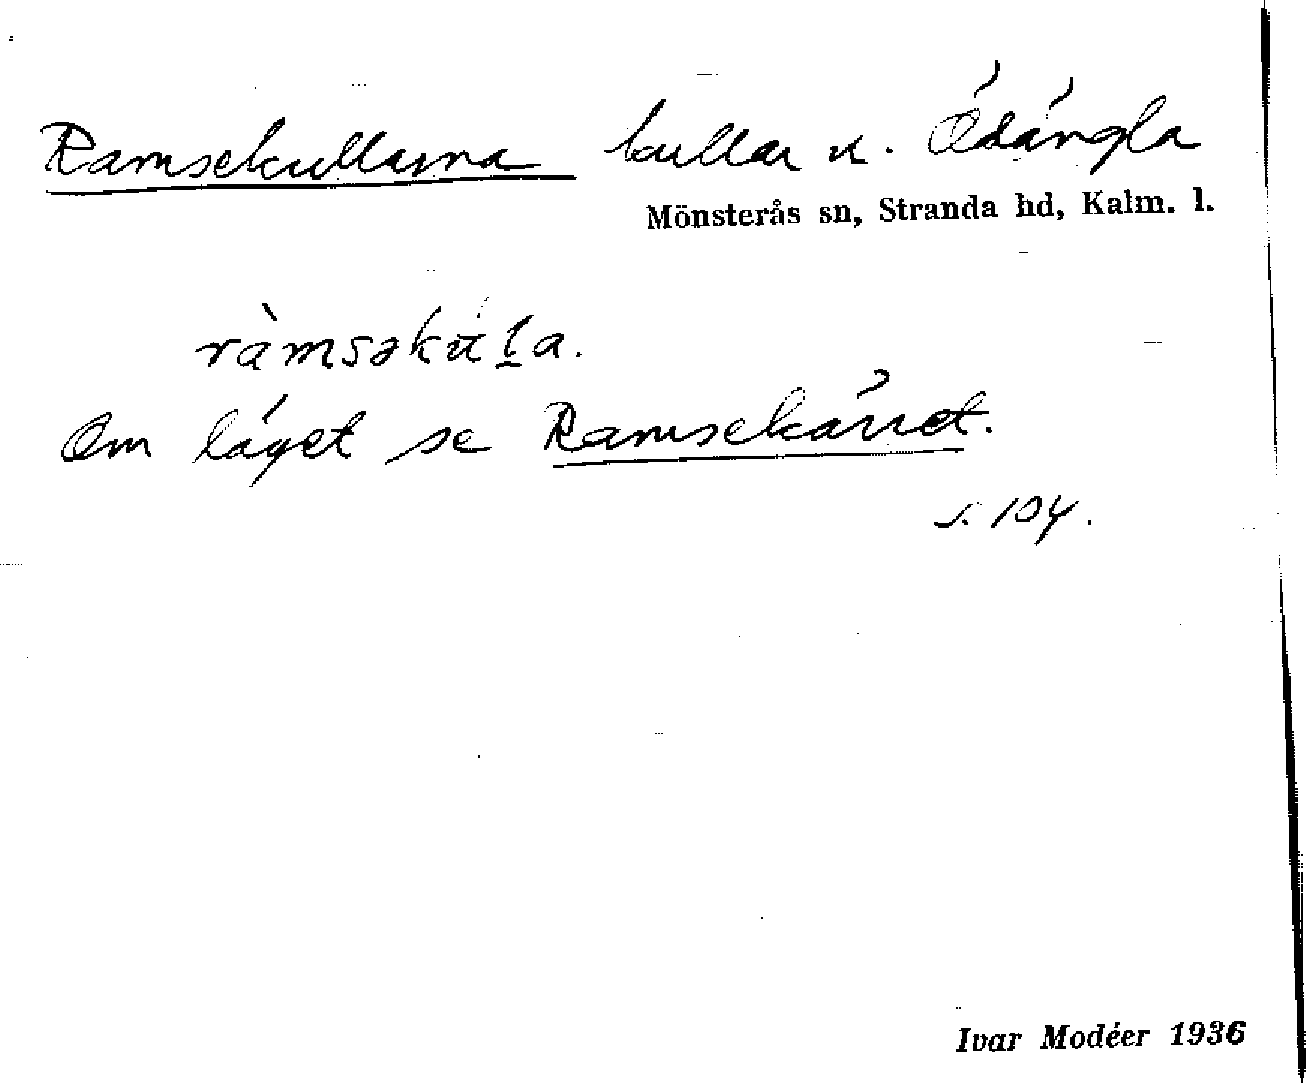 Ramsekullarna kullar u. Ödängla
Mönsterås sn, Stranda hd, Kalm. l.
ràmsəkuḷa.
Om läget se Ramsekärret.
s. 104.
Ivar Modéer 1936